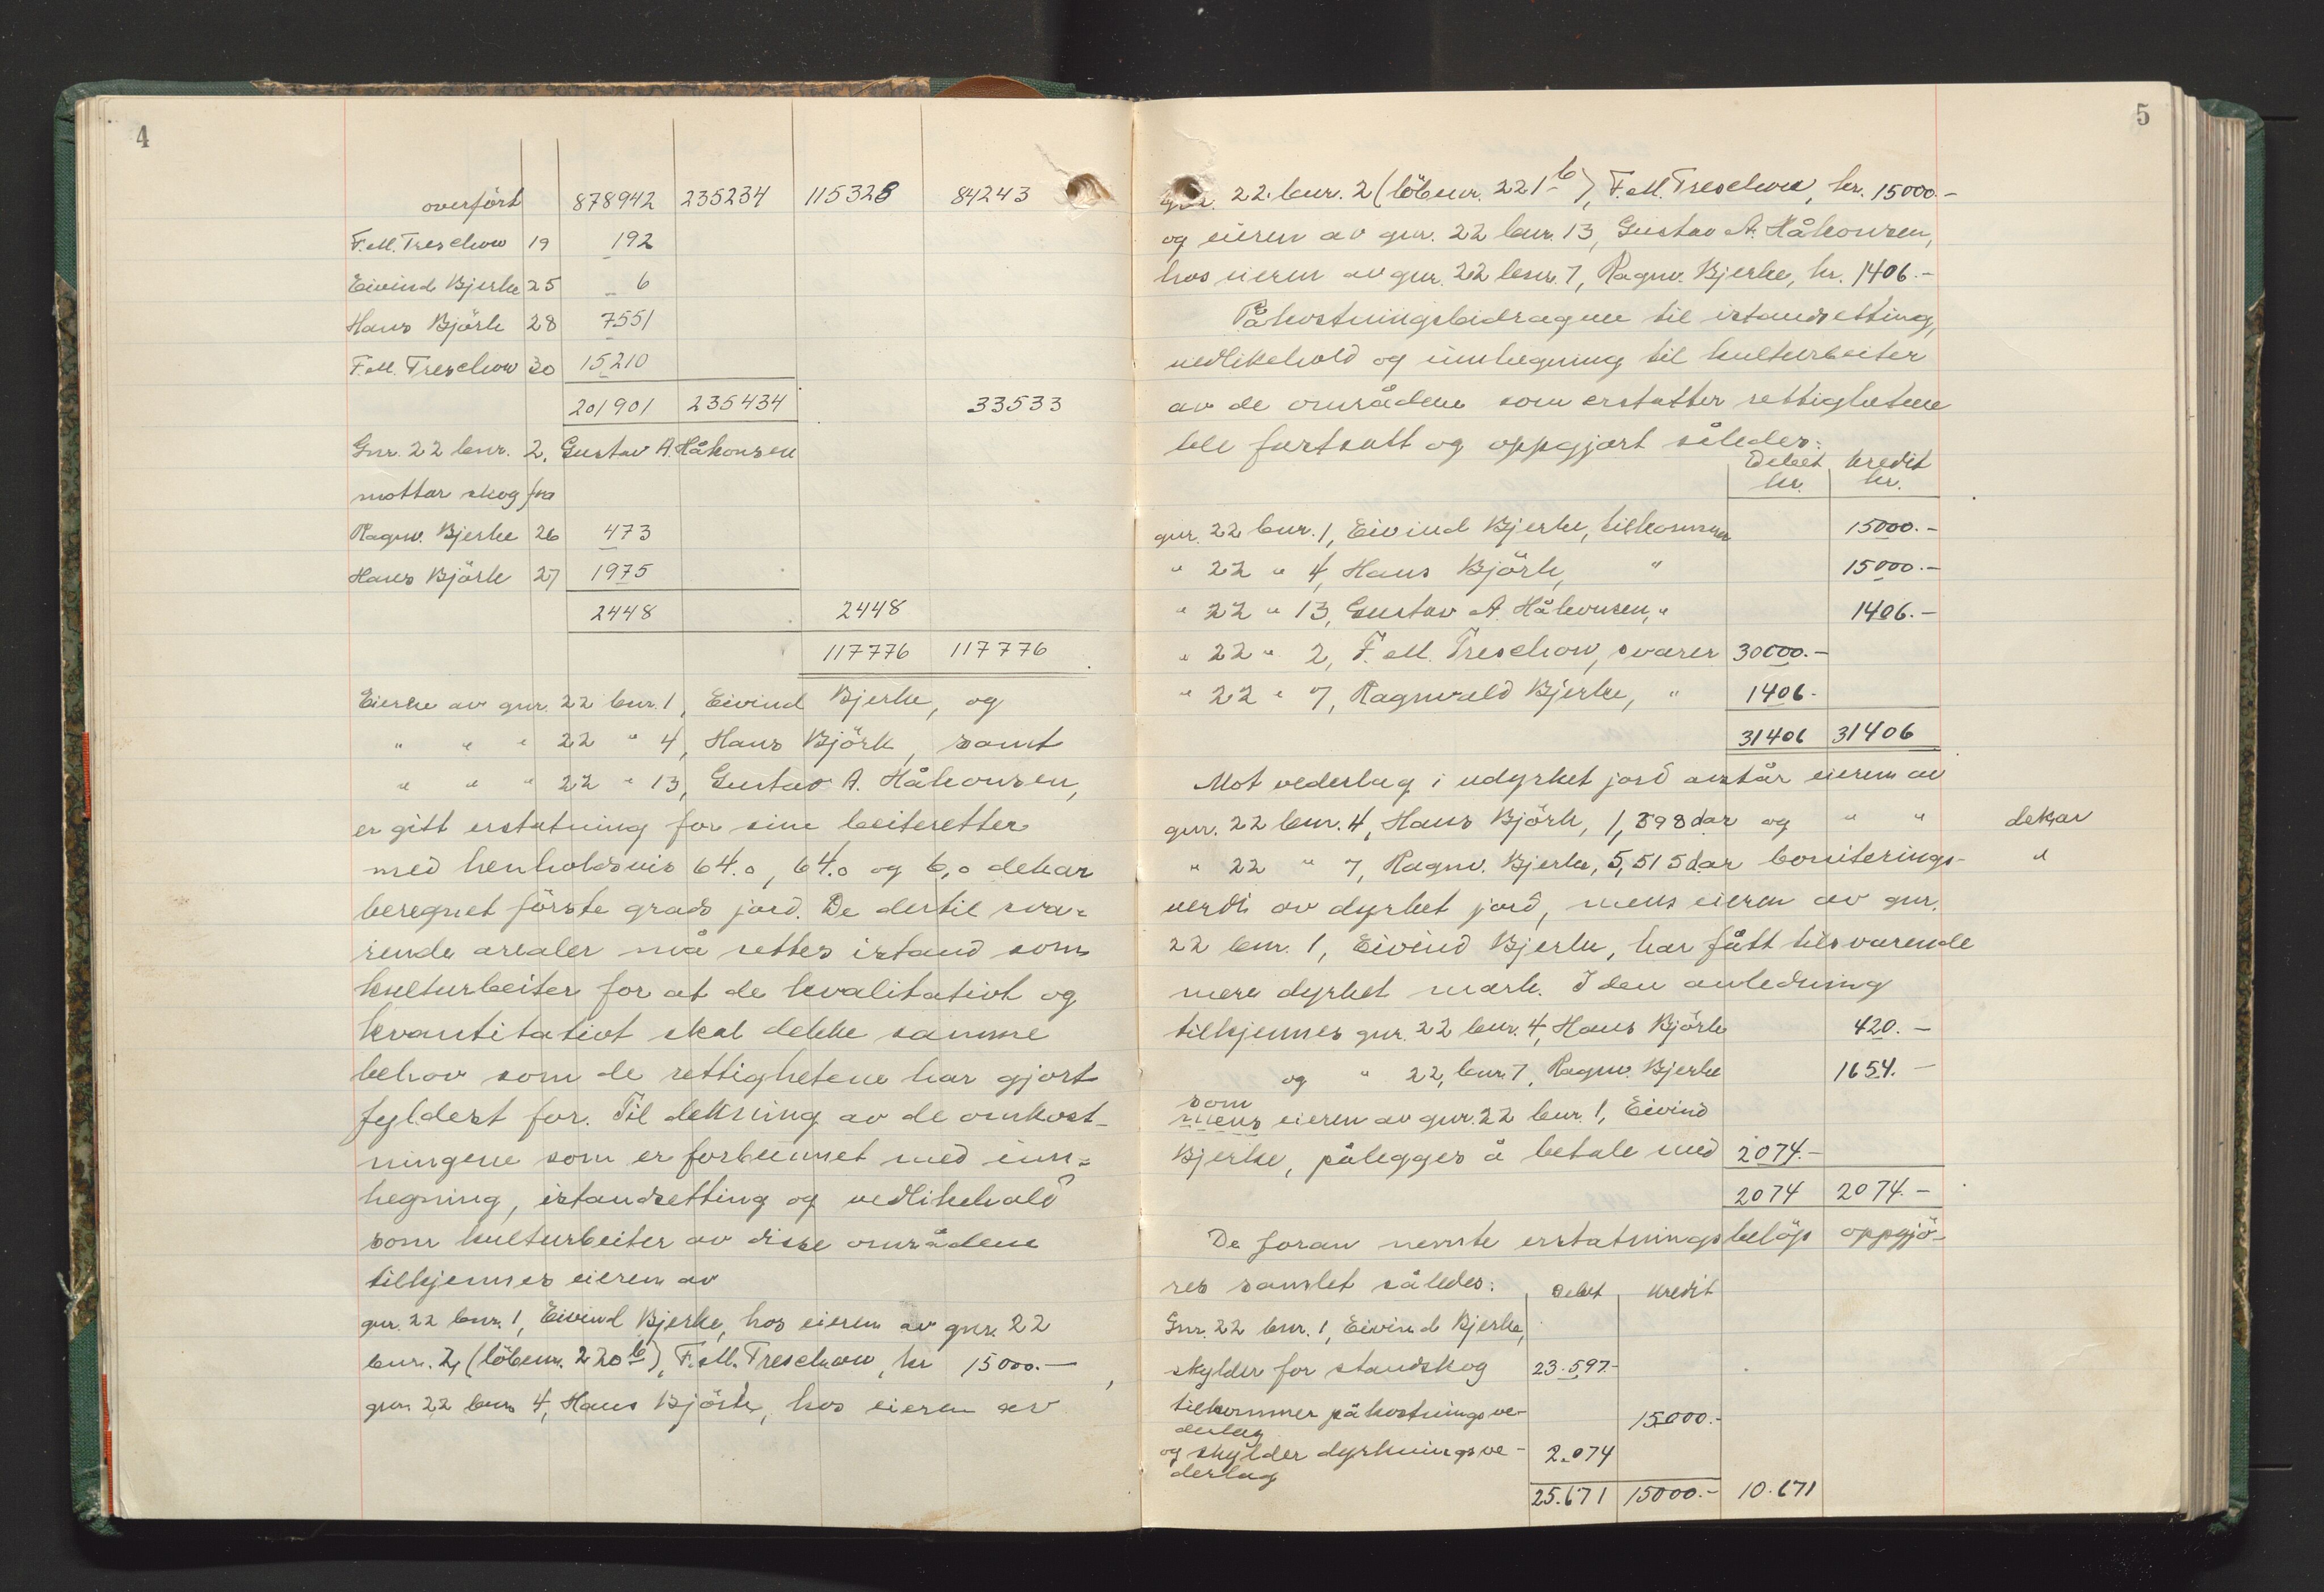 4
overført 878942 235234 115328 84243
F.M. Treschow 19 192
Eivind Bjerke 25 6
Hans Björk 28 7551
F.M. Treschow 30 15210
201901 235434 33533
Gnr. 22 bnr. 2, Gustav A. Håkonsen
mottar skog fra
Ragnv. Bjerke 26 473
Hans Björk 27 1975
2448 2448
117776 117776
Eierne av gnr. 22 bnr. 1, Eivind Bjerke, og
" " " 22 " 4, Hans Björk, samt
" " " 22 " 13, Gustav A. Håkonsen,
er gitt erstatning for sine beiteretter
med henholdsvis 64.0, 64.0 og 6,0 dekar
beregnet förste grads jord. De dertil sva-
rende arealer må settes istand som
kulturbeiter for at de kvalitativt og
kvantitativt skal dekke samme
behov som de rettighetene har gjort
fyldest for. Til dekning av de omkost-
ningene som er forbunnet med inn-
hegning, istandsetting og vedlikehold
som kulturbeiter av disse områdene
tilkjennes eieren av
gnr. 22 bnr. 1, Eivind Bjerke, hos eieren av gnr. 22
bnr. 2, (löbenr. 220 b), F.M. Treschow, kr 15000.-,
gnr. 22 bnr 4, Hans Björk, hos eieren av
5
gnr. 22 bnr. 2 (löbenr. 221 b), F.M. Treschow, kr. 15000.-
og eieren av gnr. 22 bnr. 13, Gustav A. Håkonsen,
hos eieren av gnr. 22 bnr. 7, Ragnv. Bjerke, kr. 1406.-
Påkostningsbidragene til istandsetting,
vedlikehold og innhegning til kulturbeiter
av de områdene som erstatter rettighetene
ble fastsatt og oppgjort således:
Debet Kredit
kr. kr.
gnr. 22 bnr. 1, Eivind Bjerke, tilkommer 15000.-
" 22 " 4, Hans Björk, " 15000.-
" 22 " 13, Gustav A. Håkonsen, " 1406.-
" 22 " 2, F.M. Treschow, svarer 30000.-
" 22 " 7, Ragnvald Bjerke, " 1406.-
31406 31406
Mot vederlag i udyrket jord avstår eieren av
gnr. 22 bnr. 4, Hans Björk, 1,398 dar og " " dekar
" 22 " 7, Ragnv. Bjerke, 5,515 dar boniterings- "
verdi av dyrket jord, mens eieren av gnr.
22 bnr. 1, Eivind Bjerke, har fått tilsvarende
mere dyrket mark. I den anledning
tilkjennes gnr. 22 bnr. 4, Hans Björk 420.-
og " 22, bnr. 7, Ragnv. Bjerke 1654.-
som
mens eieren av gnr. 22 bnr. 1, Eivind
Bjerke, pålegges å betale med 2074.-
2074 2074.-
De foran nevnte erstatningsbelöp oppgjö-
res samlet således: Debet Kredit
Gnr. 22 bnr. 1, Eivind Bjerke,
skylder for standskog 23.597.-
tilkommer påkostningsve-
derlag 15000.-
og skylder dyrkningsve-
derlag 2.074
25.671 15000.- 10.671